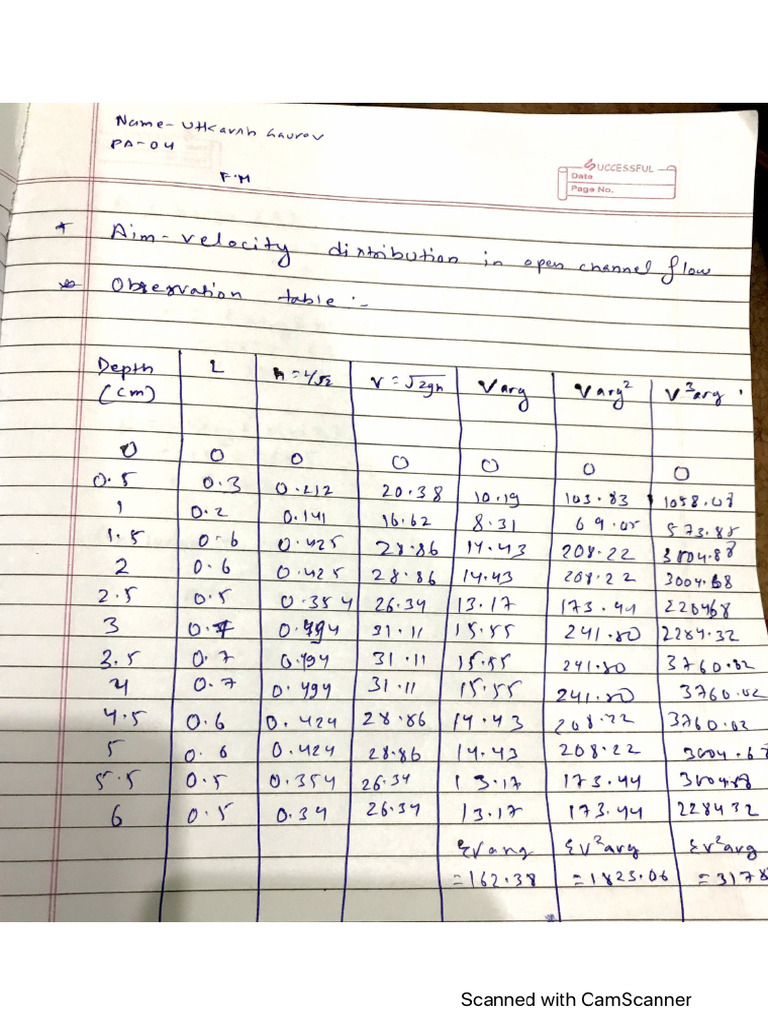 Name- Utkarsh Gaurav
PA-04
F.M
SUCCESSFUL
Date
Page No.
* Aim- velocity distribution in open channel flow
Observation table :-
Depth (cm) L h = L/√2 v = √2gh Vavg Vavg² V³avg
0 0 0 0 0 0 0
0.5 0.3 0.212 20.38 10.19 103.83 1058.07
1 0.2 0.141 16.62 8.31 69.05 573.85
1.5 0.6 0.425 28.86 14.43 208.22 3004.88
2 0.6 0.425 28.86 14.43 208.22 3004.68
2.5 0.5 0.354 26.34 13.17 173.44
3 0.7 0.494 31.11 15.55 241.80 2284.32
3.5 0.7 0.494 31.11 15.55 241.80 3760.02
4 0.7 0.494 31.11 15.55 241.80 3760.02
4.5 0.6 0.424 28.86 14.43 208.22 3760.02
5 0.6 0.424 28.86 14.43 208.22 3004.67
5.5 0.5 0.354 26.34 13.17 173.44
6 0.5 0.34 26.34 13.17 173.44 228432
ΣVavg Σv²avg Σv²avg
=162.38 =1823.06 =3178
Scanned with CamScanner